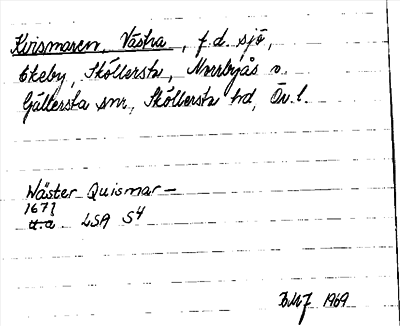 Kvismaren, Västra, f.d. sjö,
Ekeby, Sköllersta, Norrbyås o.
Gällersta snr, Sköllersta hd, Ör. l.
Wäster Quismar –
1677
u.a LSA S4
BMJ 1969